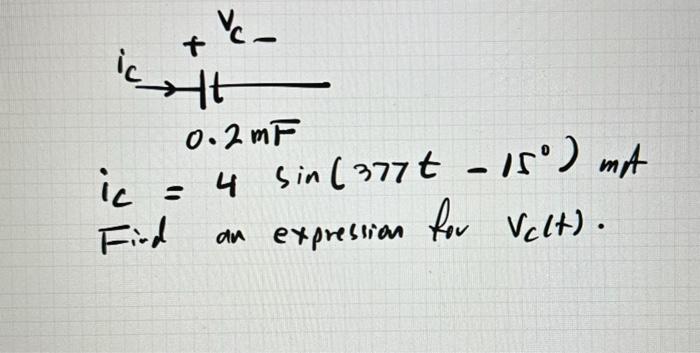 + Vc -
ic
0.2mF
ic = 4 sin(377t - 15°) mA
Find an expression for Vc(t).